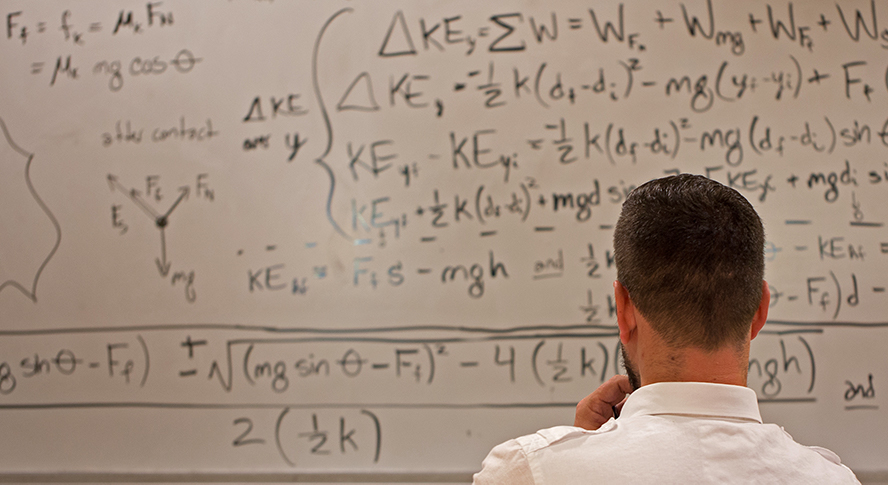 F_f = f_k = μ_k F_N
= μ_k mg cos θ
after contact
F_f F_N
F_s
mg
ΔKE
are y
ΔKE_y = ΣW = W_Fs + W_mg + W_Ff + W
ΔKE_y = -1/2 k(d_f-d_i)² - mg(y_f-y_i) + F_f (
KE_yf - KE_yi = -1/2 k(d_f-d_i)² - mg(d_f-d_i) sin θ
KE_yf + 1/2 k(d_f-d_i)² + mgd sin KE_yi + mgd_i si
KE_hf = F_f s - mgh and 1/2 - KE_hf =
1/2 - F_f)d -
g sin θ - F_f) ± √(mg sin θ - F_f)² - 4(1/2 k)( mgh) and
2(1/2 k)